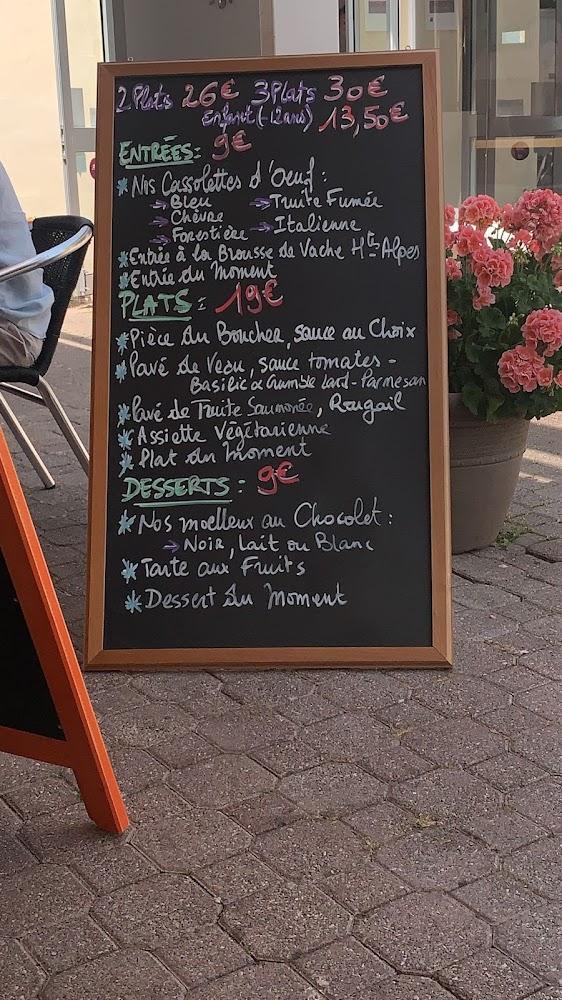 2 Plats 26€ 3 Plats 30€
Enfant (-12ans) 13,50€
ENTRÉES: 9€
* Nos Cassolettes d'Oeuf:
→ Bleu → Truite Fumée
→ Chèvre → Italienne
→ Forestière
* Entrée à la Brousse de Vache Htes-Alpes
* Entrée du Moment
PLATS: 19€
* Pièce du Boucher, sauce au Choix
* Pavé de Veau, sauce tomates -
Basilic & Crumble lard - Parmesan
* Pavé de Truite Saumonée, Rougail
* Assiette Végétarienne
* Plat du Moment
DESSERTS: 9€
* Nos moelleux au Chocolat:
→ Noir, Lait ou Blanc
* Tarte aux Fruits
* Dessert du Moment